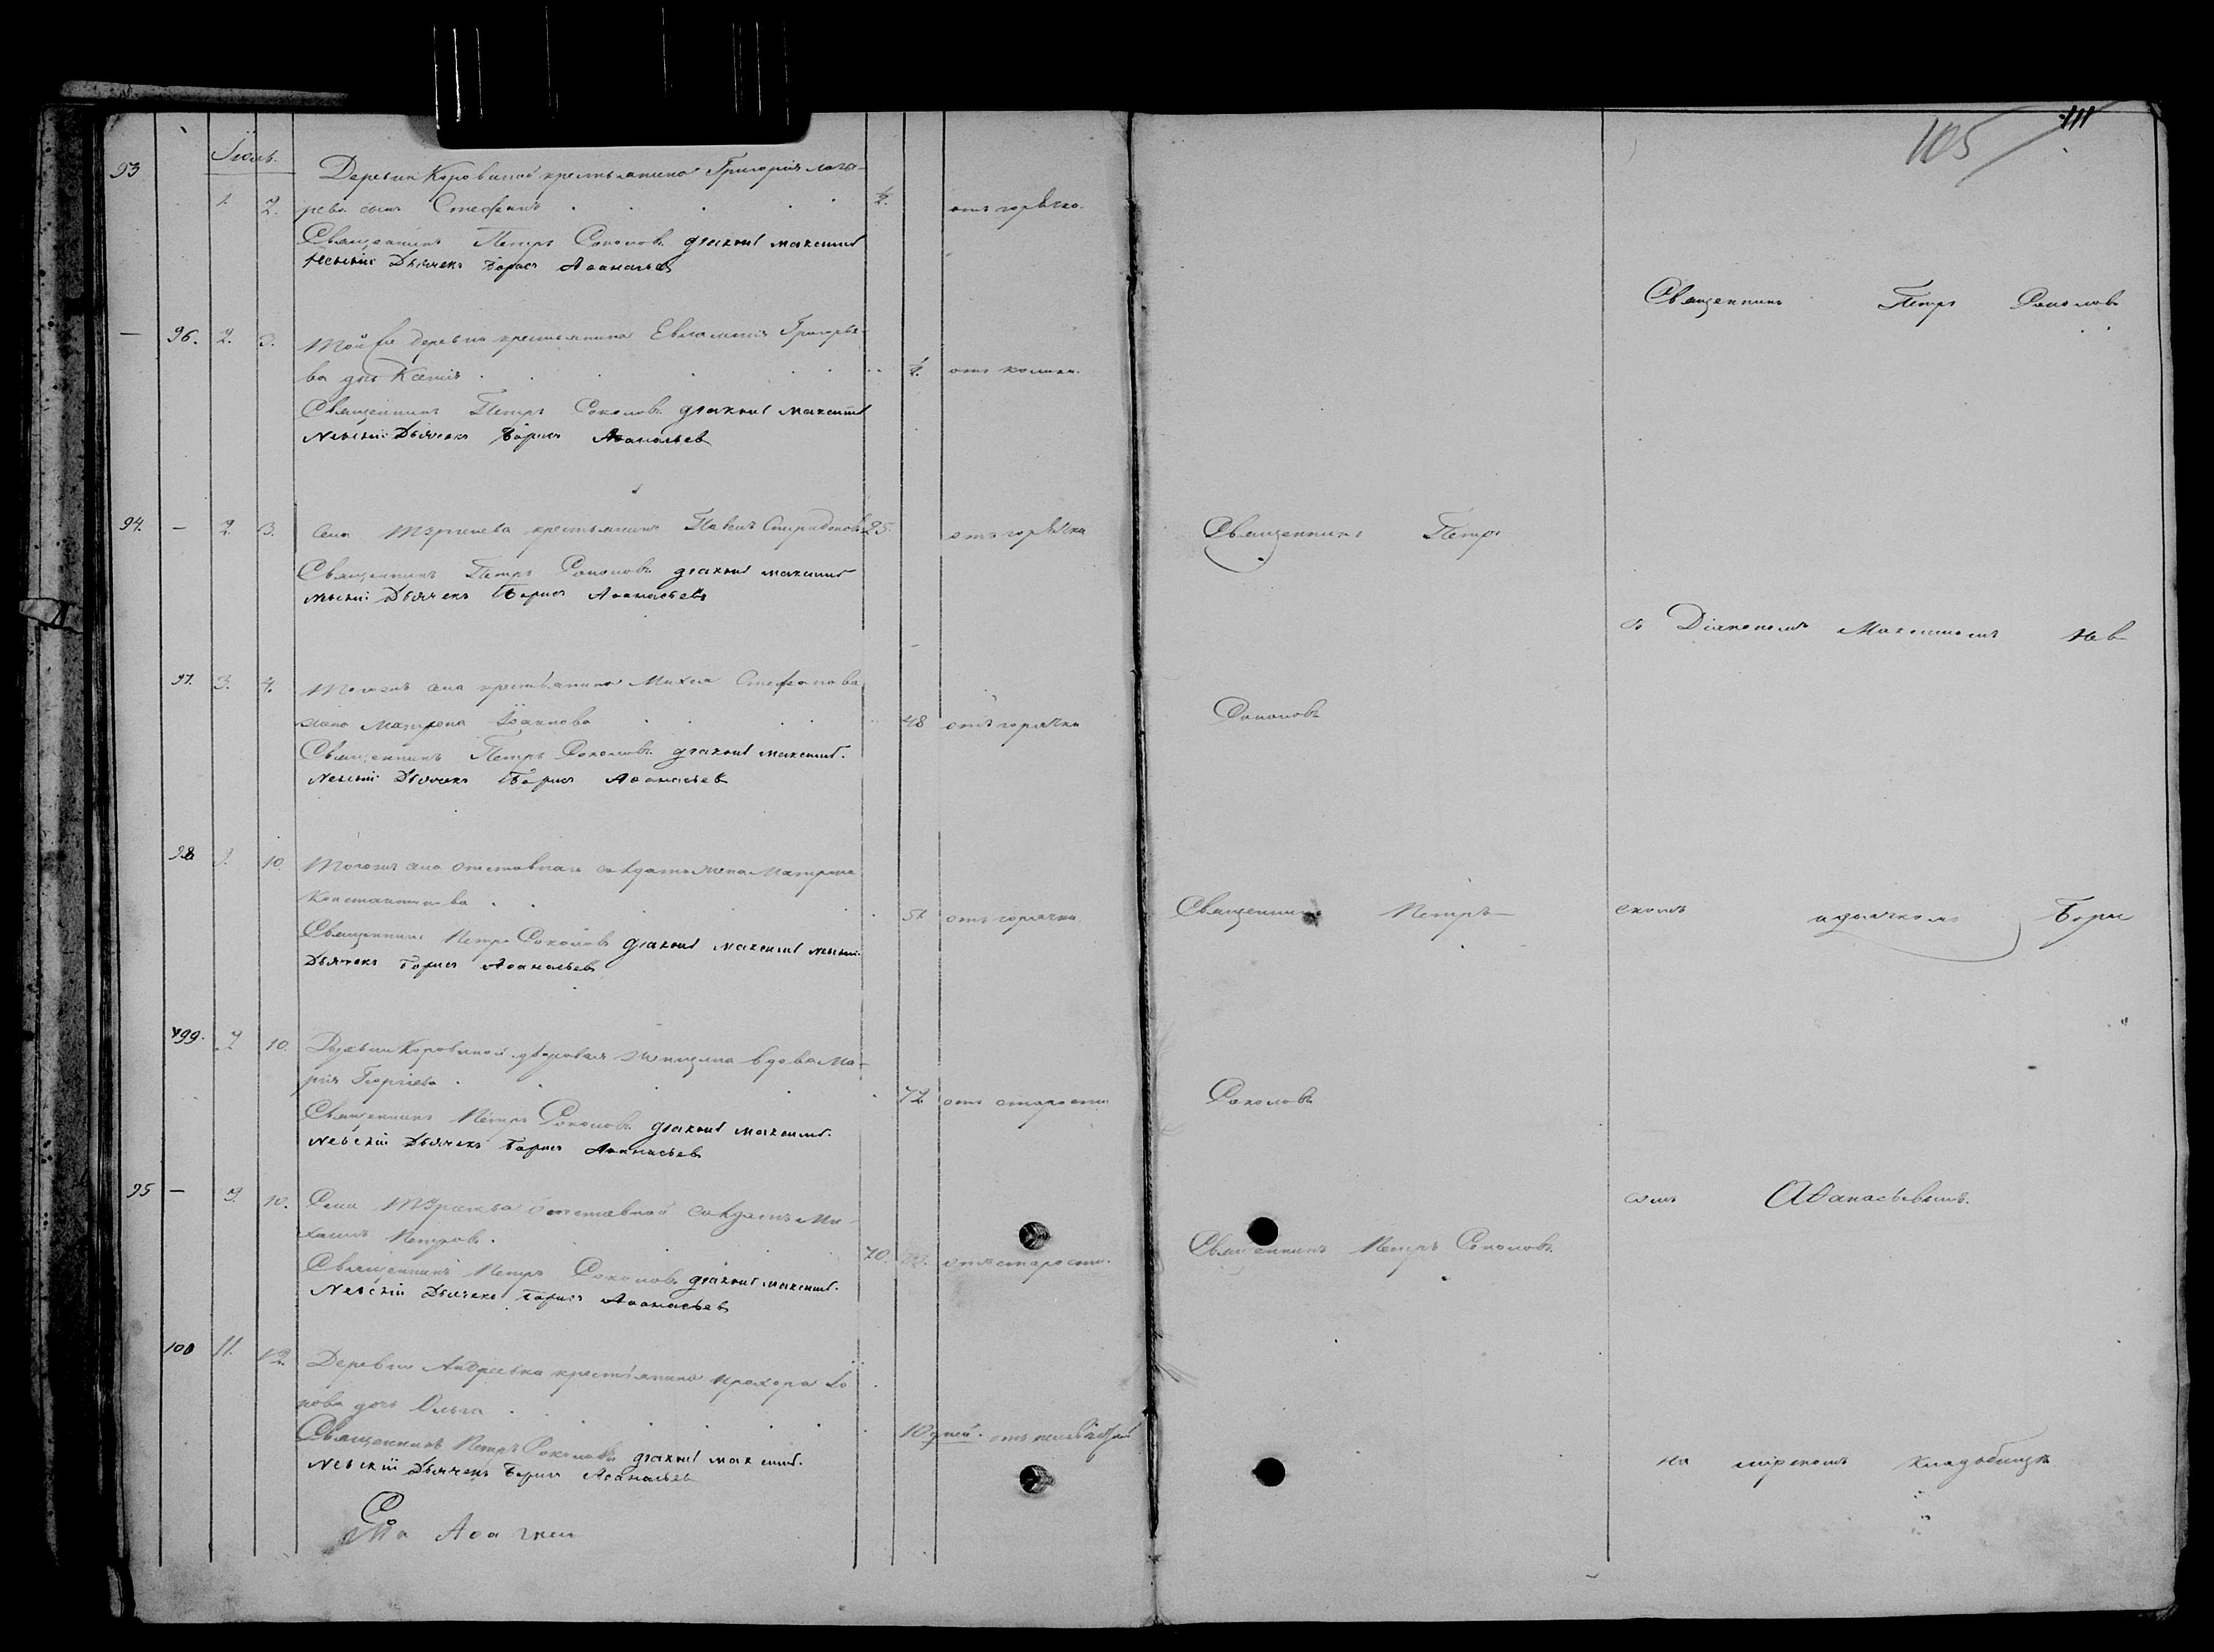 105
111
Іюль.
93
Деревни Коровиной крестьянина Григорія Лаза-
1. 2. рева сынъ Стефанъ ½ отъ горячки.
Священникъ Петръ Соколовъ діаконъ Максимъ
Невскій Дьячекъ Борисъ Аѳанасьевъ
— 96. 2. 3. Той же деревни крестьянина Евлампія Григорье-
ва дочь Ксенія отъ колики.
Священникъ Петръ Соколовъ діаконъ Максимъ
Невскій Дьячекъ Борисъ Аѳанасьевъ
94. — 2. 3. Села крестьянинъ Павелъ Спиридоновъ 25. отъ горячки
Священникъ Петръ Соколовъ діаконъ Максимъ
Невскій Дьячекъ Борисъ Аѳанасьевъ
97. 3. 4. Тогожъ села крестьянина Стефанова
жена Матрона Іоаннова 48 отъ горячки
Священникъ Петръ Соколовъ діаконъ Максимъ
Невскій Дьячекъ Борисъ Аѳанасьевъ
98. 9. 10. Тогожъ села отставнаго солдата жена Матрона
Константинова 51 отъ горячки
Священникъ Петръ Соколовъ діаконъ Максимъ Невскій
Дьячекъ Борисъ Аѳанасьевъ
99. 10. Деревни Коровиной дворовая женщина вдова Ма-
рія Георгіева 72 отъ старости
Священникъ Петръ Соколовъ діаконъ Максимъ
Невскій Дьячекъ Борисъ Аѳанасьевъ
95 — 9. 10. Села отставной солдатъ Ми-
хаилъ Петровъ. 70. отъ старости.
Священникъ Петръ Соколовъ діаконъ Максимъ
Невскій Дьячекъ Борисъ Аѳанасьевъ
100 11. 12. Деревни Андреевка крестьянина Прохора
дочь Ольга 10 дней.
Священникъ Петръ Соколовъ діаконъ Максимъ
Невскій Дьячекъ Борисъ Аѳанасьевъ
Священникъ Петръ
Соколовъ
Священникъ Петръ
Соколовъ
Священникъ Петръ Соколовъ
Священникъ Петръ Соколовъ
съ Діакономъ Максимомъ Нев
скимъ и дьячкомъ Бори
сомъ Аѳанасьевымъ.
на мірскомъ кладбищѣ